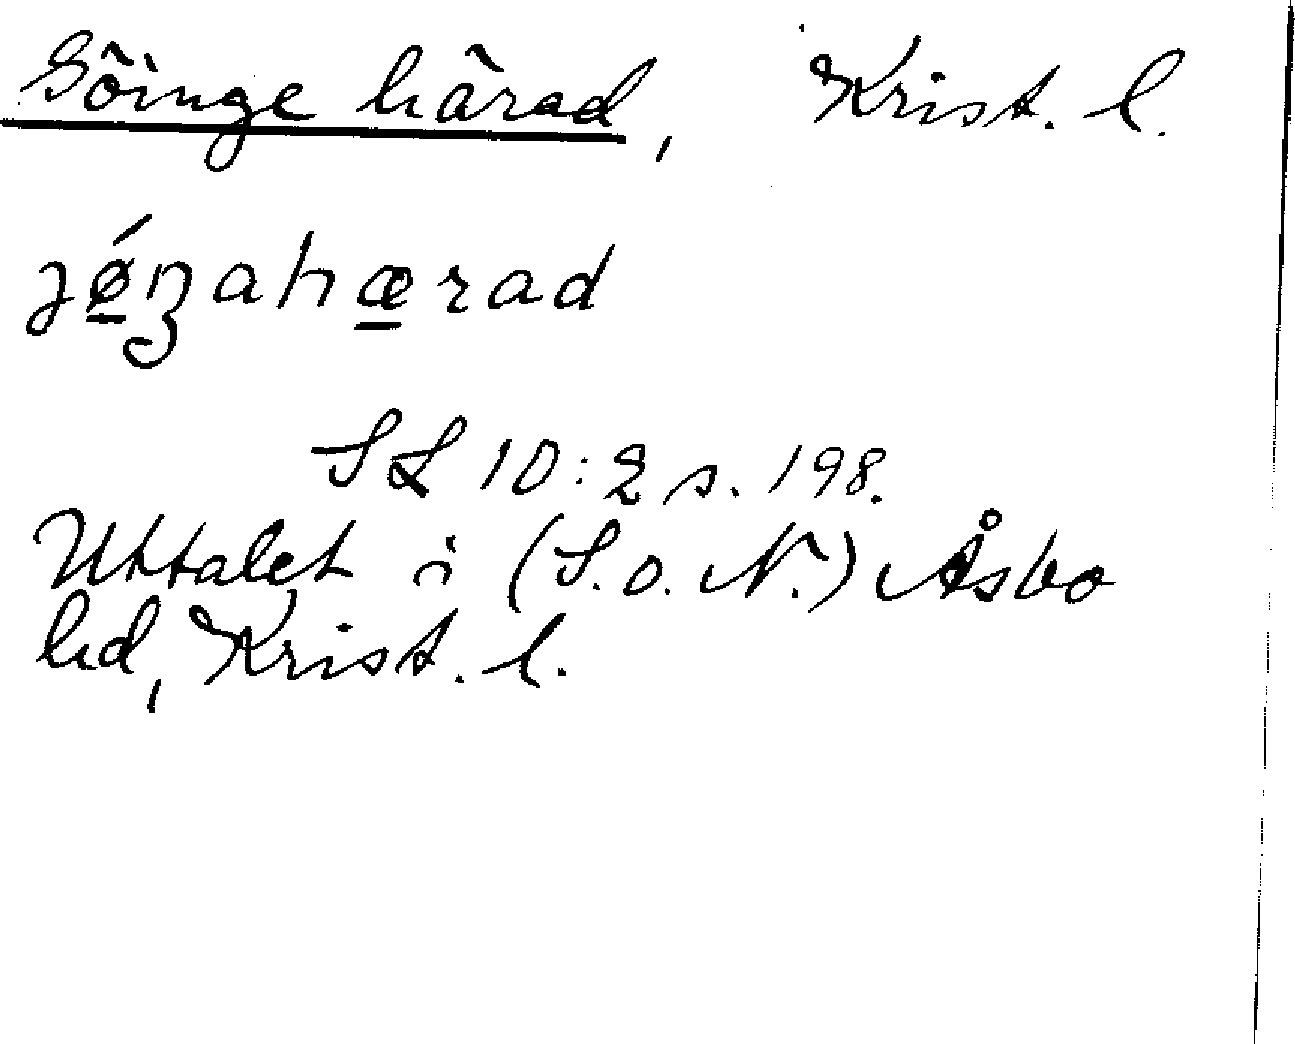 Göinge härad, Krist. l.
jǿ̲ŋahæ̲rad
SL 10:2 s. 198.
Uttalet i (S. o. N.) Åsbo
hd, Krist. l.